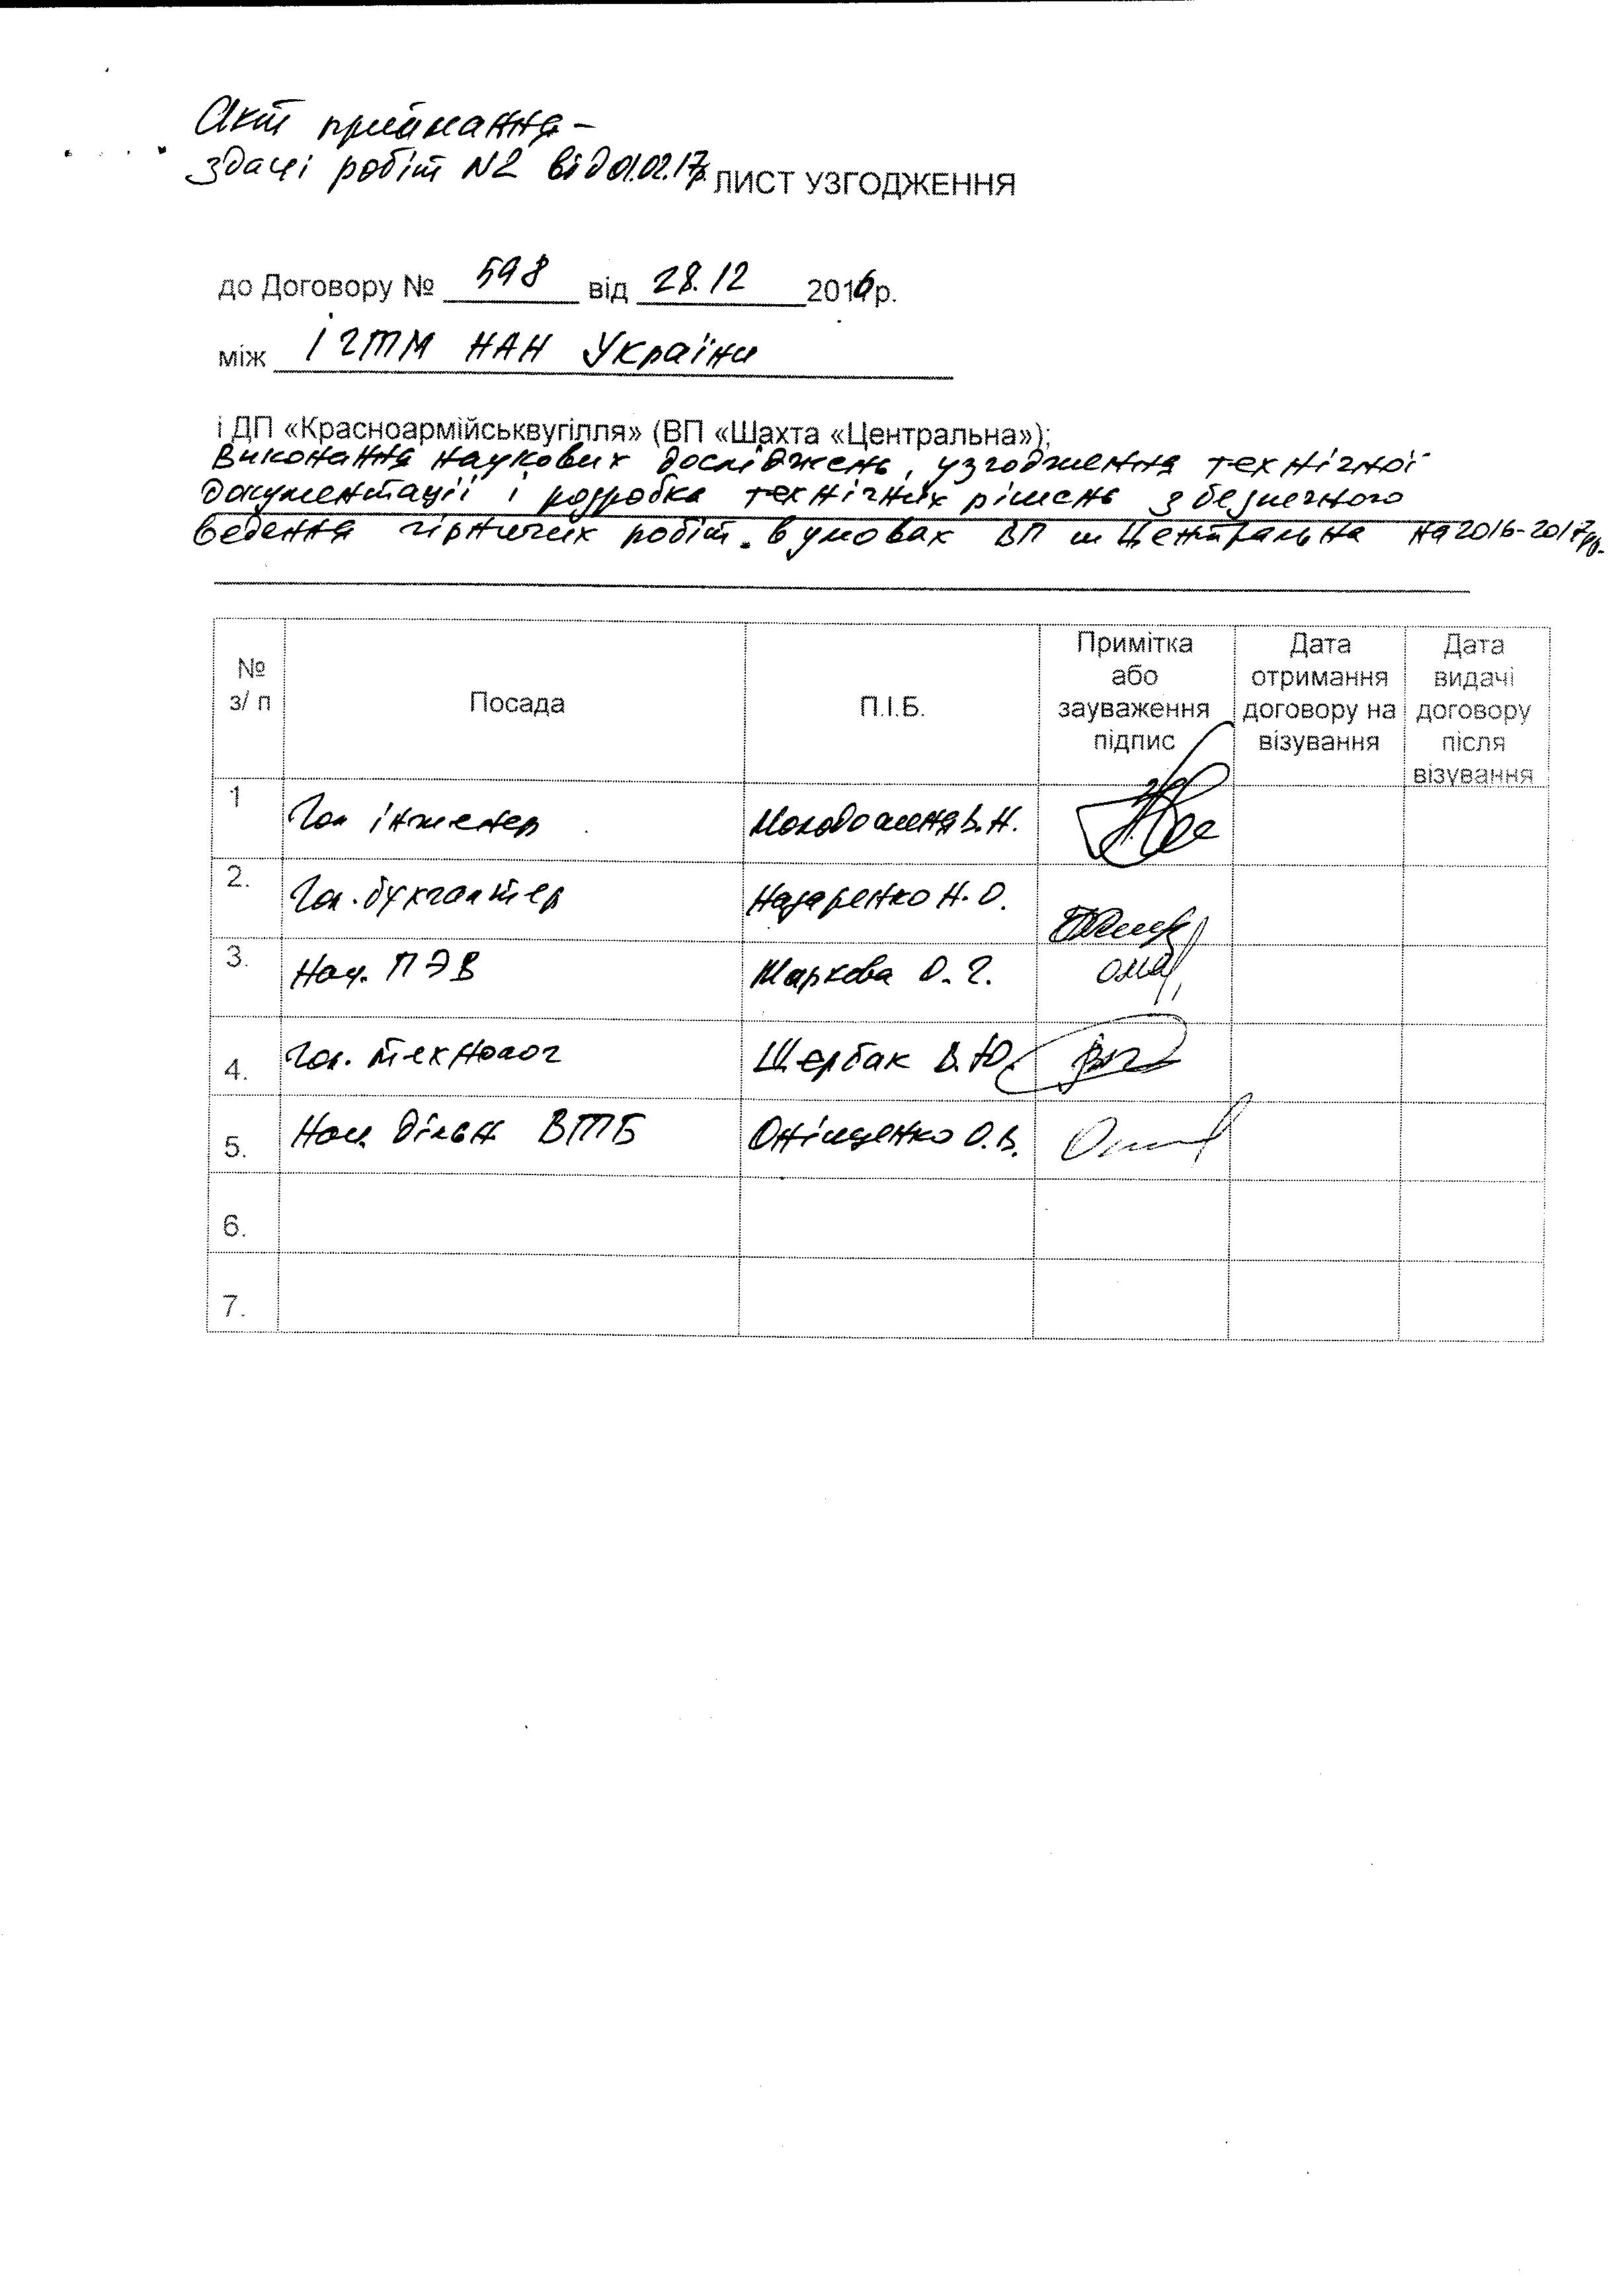 Акт приймання-
здачі робіт N2 від 01.02.17р. ЛИСТ УЗГОДЖЕННЯ
до Договору № 598 від 28.12 2016р.
між ІГТМ НАН України
і ДП «Красноармійськвугілля» (ВП «Шахта «Центральна»);
Виконання наукових досліджень, узгодження технічної
документації і розробка технічних рішень з безпечного
ведення гірничих робіт в умовах ВП ш Центральна на 2016-2017рр.
№ з/ п Посада П.І.Б. Примітка або зауваження підпис Дата отримання договору на візування Дата видачі договору після візування
1 Гол інженер В.Н.
2. Гол. бухгалтер Назаренко Н.О.
3. Нач. ПЭВ Маркова О.Г.
4. Гол. технолог Щербак В.Ю.
5. Нач дільн ВТБ Оніщенко О.В.
6.
7.